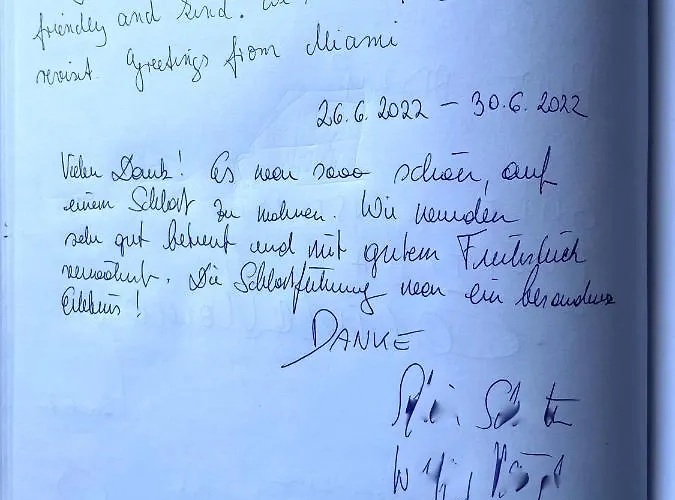 friendly and kind. We
revisit. Greetings from Miami
26.6.2022 – 30.6.2022
Vielen Dank! Es war sooo schön, auf
einem Schloß zu wohnen. Wir wurden
sehr gut betreut und mit gutem Frühstück
verwöhnt. Die Schloßführung war ein besonderes
Erlebnis!
DANKE